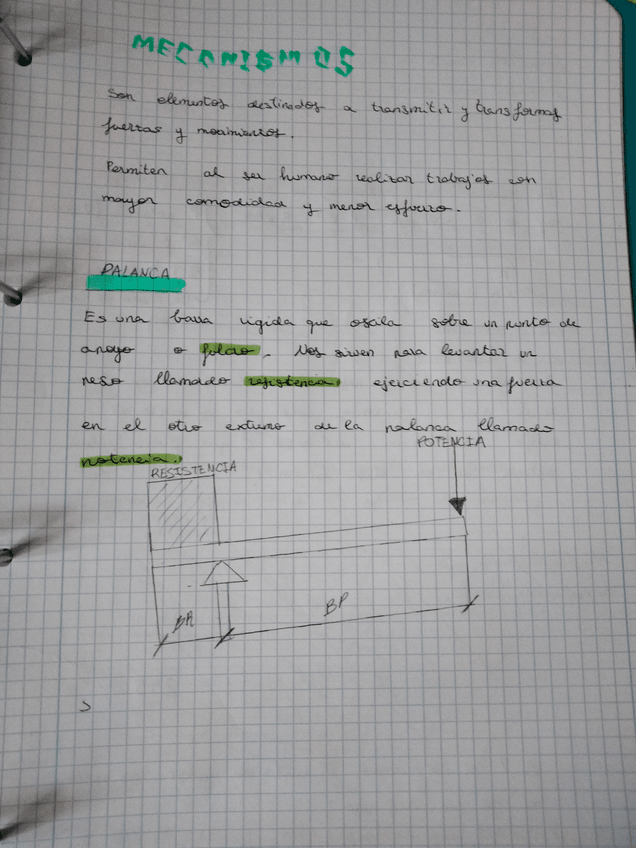 MECANISMOS
Son elementos destinados a transmitir y transformar
fuerzas y movimientos.
Permiten al ser humano realizar trabajos con
mayor comodidad y menor esfuerzo.
PALANCA
Es una barra rigida que oscila sobre un punto de
apoyo o fulcro. Nos sirven para levantar un
peso llamado resistencia ejerciendo una fuerza
en el otro extremo de la palanca llamado
potencia.
POTENCIA
RESISTENCIA
BR
BP